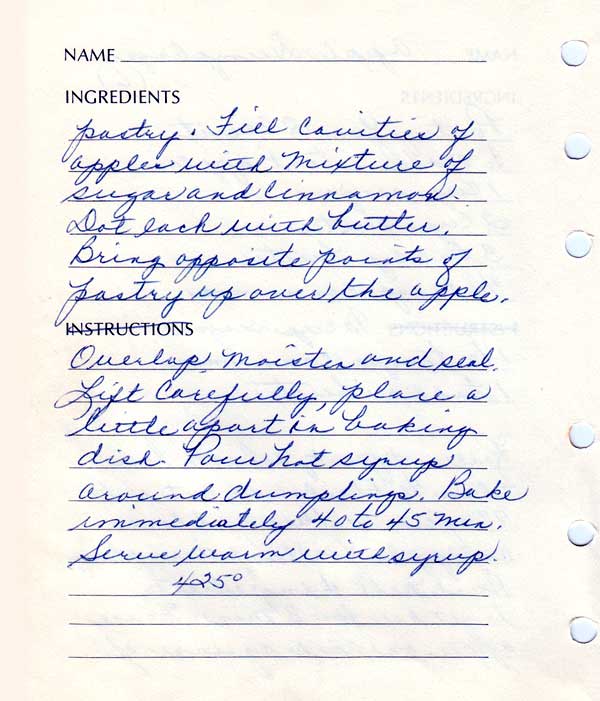 NAME
INGREDIENTS
pastry. Fill Cavities of
apples with Mixture of
sugar and Cinnamon.
Dot each with butter.
Bring opposite points of
pastry up over the apple.
INSTRUCTIONS
Overlap, moisten and seal.
Lift Carefully, place a
little apart in baking
dish. Pour hot syrup
around dumplings. Bake
immediately 40 to 45 Min.
Serve warm with syrup.
425°